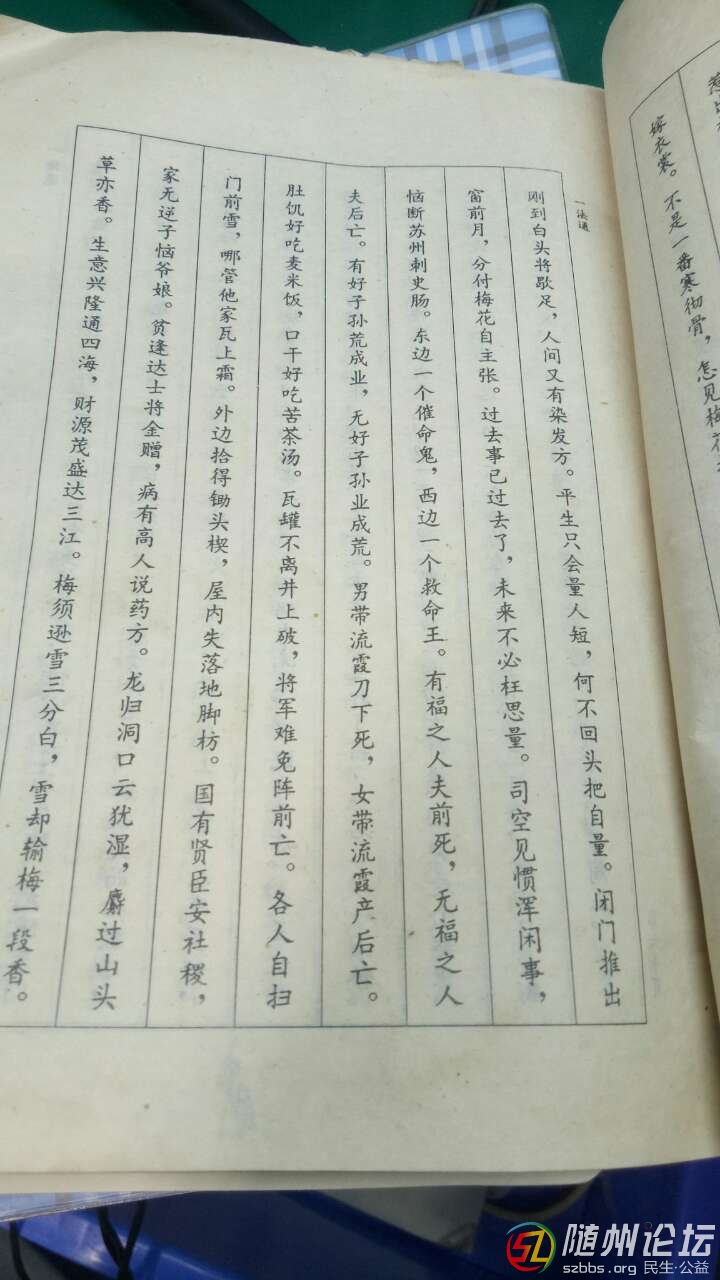 嫁衣裳。不是一番寒彻骨，怎见梅花
一法通
刚到白头将歇足，人间又有染发方。平生只会量人短，何不回头把自量。闭门推出
窗前月，分付梅花自主张。过去事已过去了，未来不必枉思量。司空见惯浑闲事，
恼断苏州刺史肠。东边一个催命鬼，西边一个救命王。有福之人夫前死，无福之人
夫后亡。有好子孙荒成业，无好子孙业成荒。男带流霞刀下死，女带流霞产后亡。
肚饥好吃麦米饭，口干好吃苦茶汤。瓦罐不离井上破，将军难免阵前亡。各人自扫
门前雪，哪管他家瓦上霜。外边拾得锄头楔，屋内失落地脚枋。国有贤臣安社稷，
家无逆子恼爷娘。贫逢达士将金赠，病有高人说药方。龙归洞口云犹湿，麝过山头
草亦香。生意兴隆通四海，财源茂盛达三江。梅须逊雪三分白，雪却输梅一段香。
随州论坛
szbbs.org 民生·公益